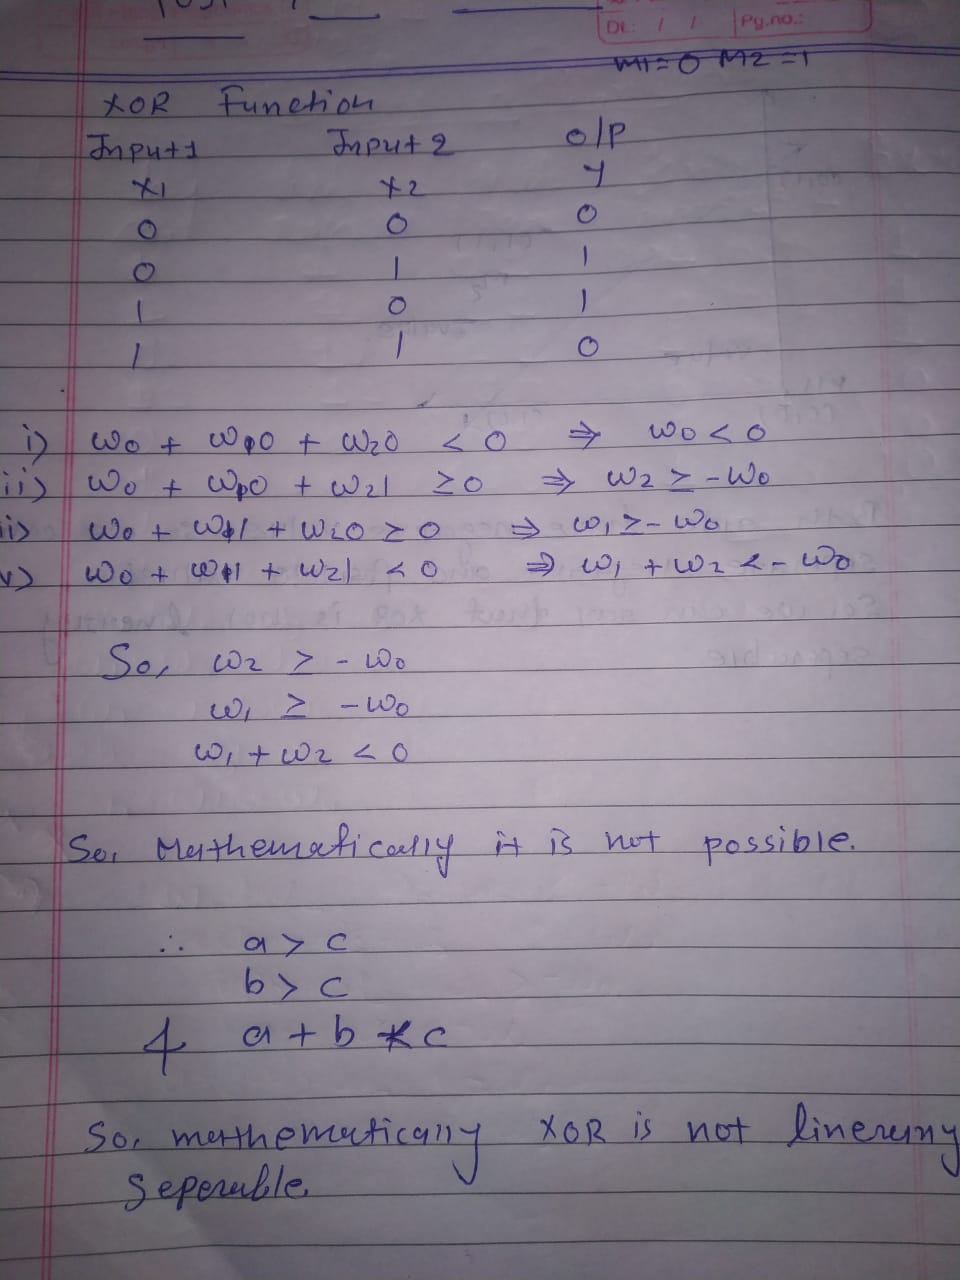 Dt: / / Pg.no.:
M1=0 M2=1
XOR Function
Input1 Input2 O/P
X1 X2 Y
0 0 0
0 1 1
1 0 1
1 1 0
i) w0 + w10 + w20 < 0 ⇒ w0 < 0
ii) w0 + w10 + w21 ≥ 0 ⇒ w2 ≥ -w0
ii) w0 + w11 + w20 ≥ 0 ⇒ w1 ≥ -w0
v) w0 + w11 + w21 < 0 ⇒ w1 + w2 < -w0
So, w2 ≥ -w0
w1 ≥ -w0
w1 + w2 < 0
So, Mathematically it is not possible.
∴ a > c
b > c
a + b < c
So, mathematically XOR is not linerany
Seperable.